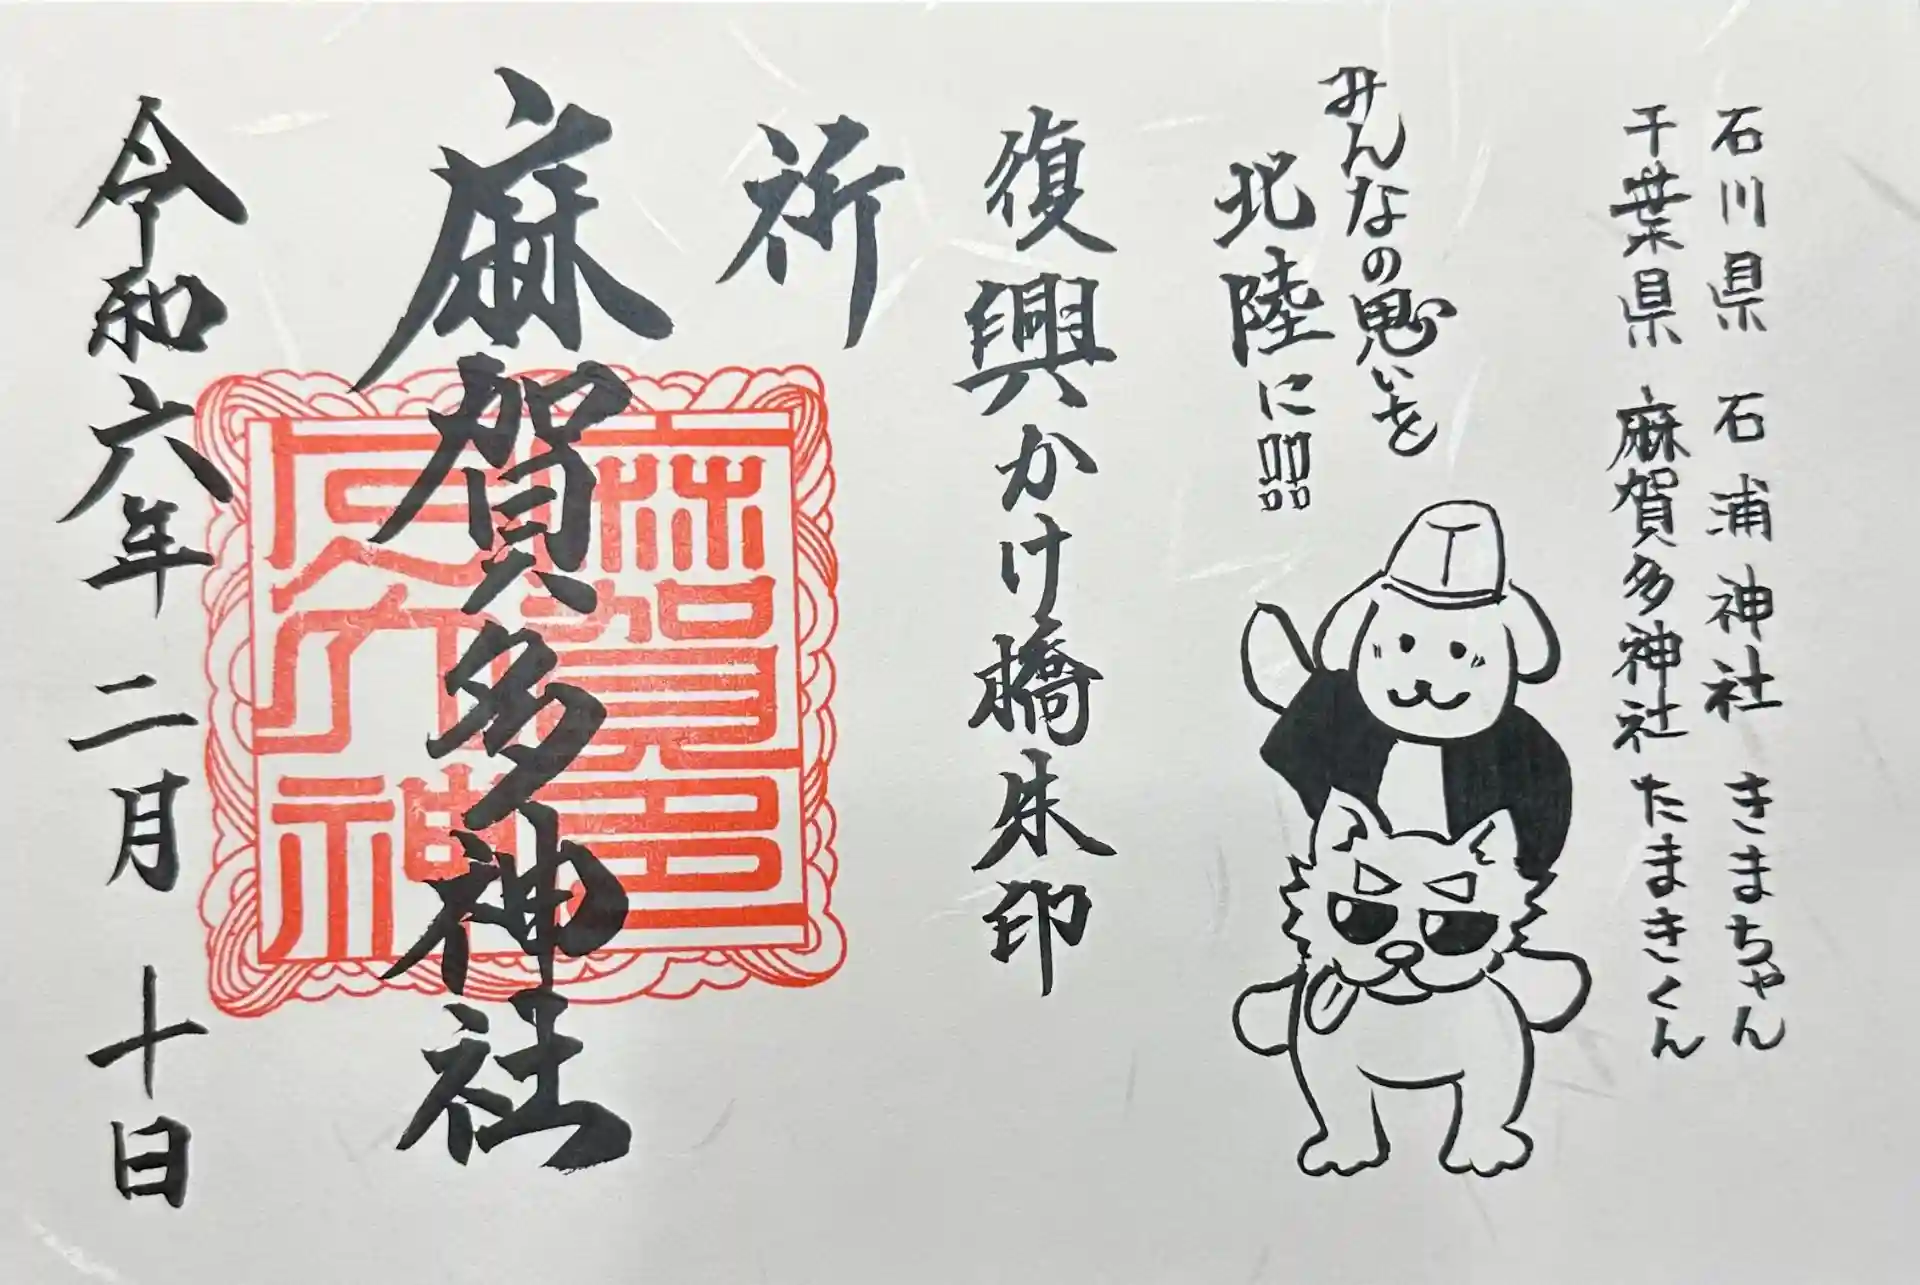 石川県 石浦神社 きまちゃん
千葉県 麻賀多神社 たまきくん
みんなの思いを
北陸に!!!
復興かけ橋朱印
祈
麻賀多神社
麻賀多
神
令和六年二月十日